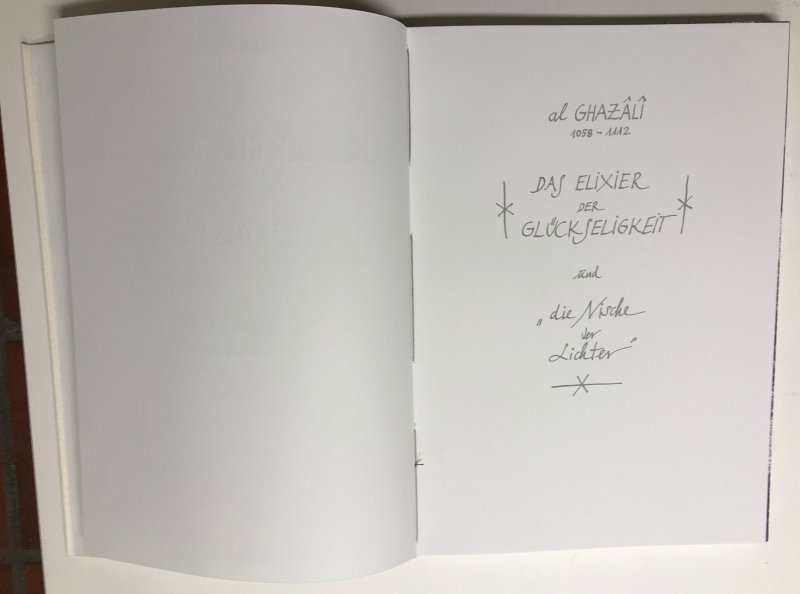 al GHAZÂLÎ
1058 - 1112
DAS ELIXIER
DER
GLÜCKSELIGKEIT
und
„die Nische
der
Lichter"